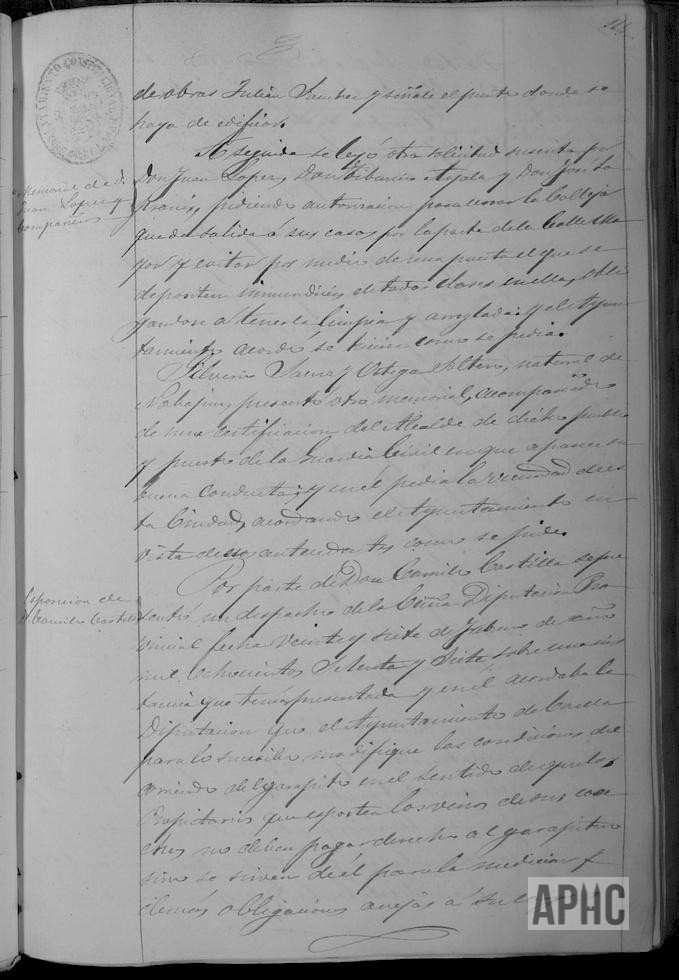 de obras Julian Sanchez y señale el punto donde se
haya de edificar.
A seguida se leyó otra solicitud suscrita por
Memorial de D.
Juan Lopez y
Compañeros
Don Juan Lopez, Don Tiburcio Ayala y Don José La
pidiendo autorizacion para cerrar la Calleja
que da salida á sus casas por la parte de la Calle Ma
yor y evitar por medio de una puerta el que se
depositen inmundicias de todas clases en ella, obli
gandose á tenerla limpia y arreglada: y el Ayun
tamiento acordó se hiciese como se pedia.
Silverio Saenz y Ortega soltero, natural de
presentó otro memorial, acompañado
de una certificacion del Alcalde de dicho pueblo
y puesto de la Guardia Civil en que aparece su
buena conducta; y en él pedia la vecindad de es
ta Ciudad, acordando el Ayuntamiento en
vista de sus antecedentes como se pide.
Exposicion de
D. Camilo Castilla
Por parte de Don Camilo Castilla se pre
sentó un despacho de la Diputacion Pro
vincial fecha veinte y siete de Febrero de
mil ochocientos setenta y siete sobre una ins
tancia que tenia presentada y en él acordaba la
Diputacion que el Ayuntamiento de
para lo sucesivo modifique las condiciones de
arriendo del garapito en el sentido de que los
Propietarios que esporten los vinos de sus cose
chas no deban pagar derecho al garapitero
sino se sirven de él para la medicion y
demás obligaciones anejas á su
APHC